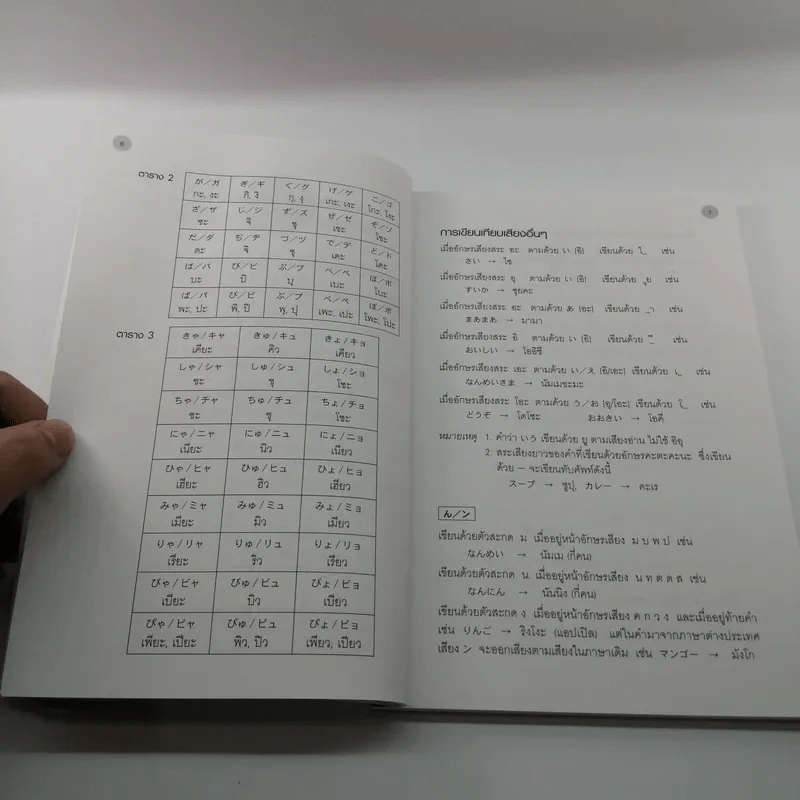 6
ตาราง 2
が/ガ ぎ/ギ ぐ/グ げ/ゲ ご/ゴ
กะ, งะ กิ, งิ กุ, งุ เกะ, เงะ โกะ, โงะ
ざ/ザ じ/ジ ず/ズ ぜ/ゼ ぞ/ゾ
ซะ จิ ซุ เซะ โซะ
だ/ダ ぢ/ヂ づ/ツ で/デ ど/ド
ดะ จิ ซุ เดะ โดะ
ば/バ び/ビ ぶ/ブ べ/ベ ぼ/ボ
บะ บิ บุ เบะ โบะ
ぱ/パ ぴ/ピ ぷ/プ ぺ/ペ ぽ/ポ
พะ, ปะ พิ, ปิ พุ, ปุ เพะ, เปะ โพะ, โปะ
ตาราง 3
きゃ/キャ きゅ/キュ きょ/キョ
เคียะ คิว เคียว
しゃ/シャ しゅ/シュ しょ/ショ
ชะ ชุ โชะ
ちゃ/チャ ちゅ/チュ ちょ/チョ
ชะ ชุ โชะ
にゃ/ニャ にゅ/ニュ にょ/ニョ
เนียะ นิว เนียว
ひゃ/ヒャ ひゅ/ヒュ ひょ/ヒョ
เฮียะ ฮิว เฮียว
みゃ/ミャ みゅ/ミュ みょ/ミョ
เมียะ มิว เมียว
りゃ/リャ りゅ/リュ りょ/リョ
เรียะ ริว เรียว
びゃ/ビャ びゅ/ビュ びょ/ビョ
เบียะ บิว เบียว
ぴゃ/ピャ ぴゅ/ピュ ぴょ/ピョ
เพียะ, เปียะ พิว, ปิว เพียว, เปียว
7
การเขียนเทียบเสียงอื่นๆ
เมื่ออักษรเสียงสระ อะ ตามด้วย い (อิ) เขียนด้วย ไ_ เช่น
さい → ไซ
เมื่ออักษรเสียงสระ อุ ตามด้วย い (อิ) เขียนด้วย _ุย เช่น
すいか → ซุยคะ
เมื่ออักษรเสียงสระ อะ ตามด้วย あ (อะ) เขียนด้วย _า เช่น
まあまあ → มามา
เมื่ออักษรเสียงสระ อิ ตามด้วย い (อิ) เขียนด้วย _ี เช่น
おいしい → โออิชี
เมื่ออักษรเสียงสระ เอะ ตามด้วย い/え (อิ/เอะ) เขียนด้วย เ_ เช่น
なんめいさま → นัมเมซะมะ
เมื่ออักษรเสียงสระ โอะ ตามด้วย う/お (อุ/โอะ) เขียนด้วย โ_ เช่น
どうぞ → โดโซะ おおきい → โอคี
หมายเหตุ 1. คำว่า いう เขียนด้วย ยู ตามเสียงอ่าน ไม่ใช้ อิอุ
2. สระเสียงยาวของคำที่เขียนด้วยอักษรคะตะคะนะ ซึ่งเขียน
ด้วย ー จะเขียนทับศัพท์ดังนี้
スープ → ซูปุ, カレー → คะเร
ん/ン
เขียนด้วยตัวสะกด ม เมื่ออยู่หน้าอักษรเสียง ม บ พ ป เช่น
なんめい → นัมเม (กี่คน)
เขียนด้วยตัวสะกด น เมื่ออยู่หน้าอักษรเสียง น ท ด ต ส เช่น
なんにん → นันนิง (กี่คน)
เขียนด้วยตัวสะกด ง เมื่ออยู่หน้าอักษรเสียง ค ก ว ง และเมื่ออยู่ท้ายคำ
เช่น りんご → ริงโงะ (แอปเปิล) แต่ในคำมาจากภาษาต่างประเทศ
เสียง ン จะออกเสียงตามเสียงในภาษาเดิม เช่น マンゴー → มังโก